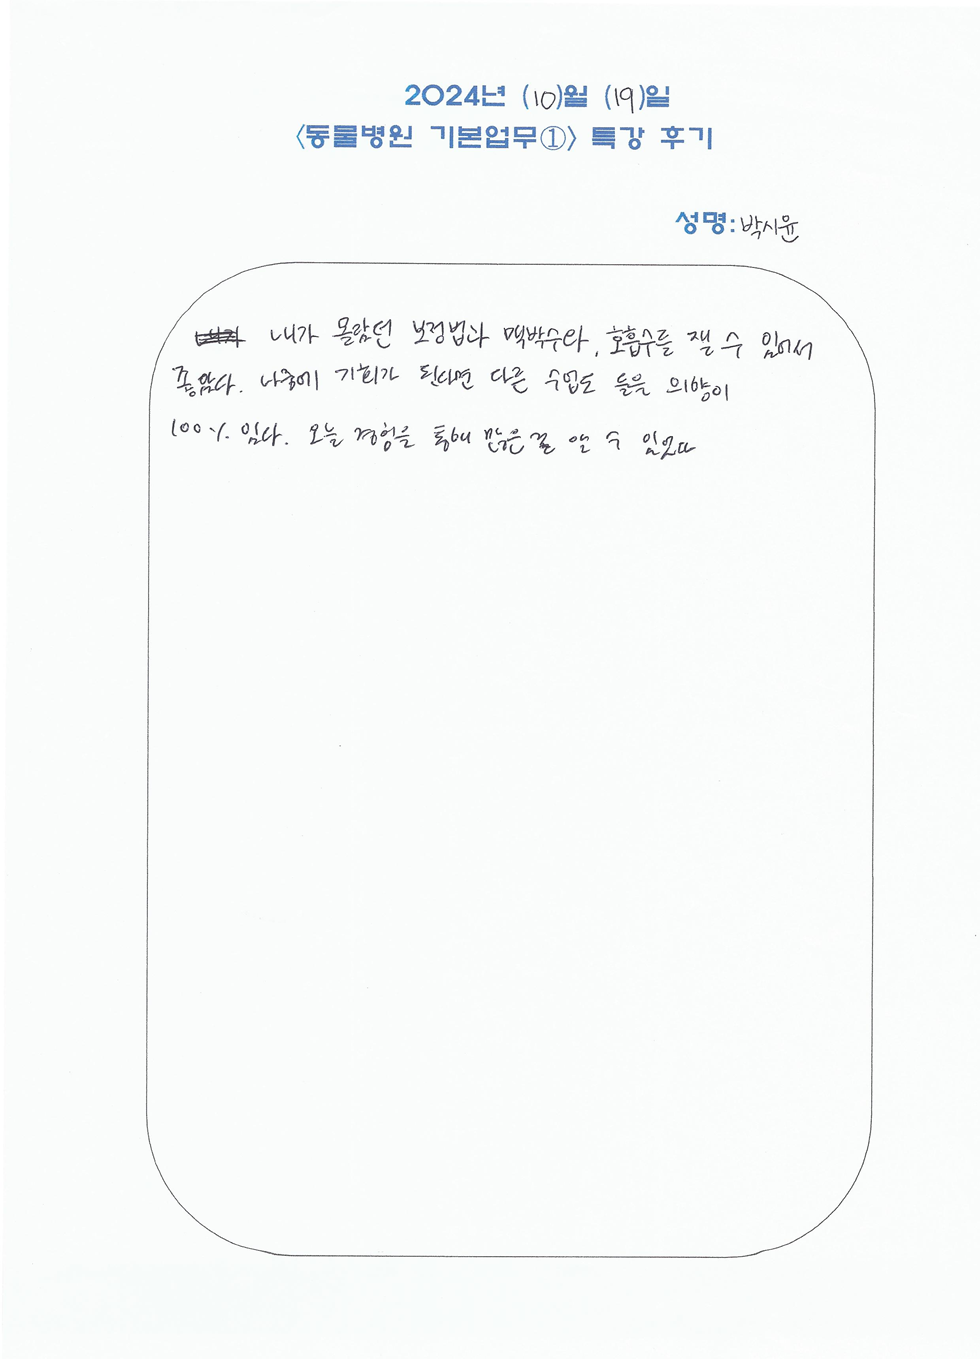 2024년 (10)월 (19)일
<동물병원 기본업무①> 특강 후기
성명: 박시윤
내가 몰랐던 보정법과 맥박수와, 호흡수를 잴 수 있어서
좋았다. 나중에 기회가 된다면 다른 수업도 들을 의향이
100% 있다. 오늘 경험을 통해 많은 걸 알 수 있었다